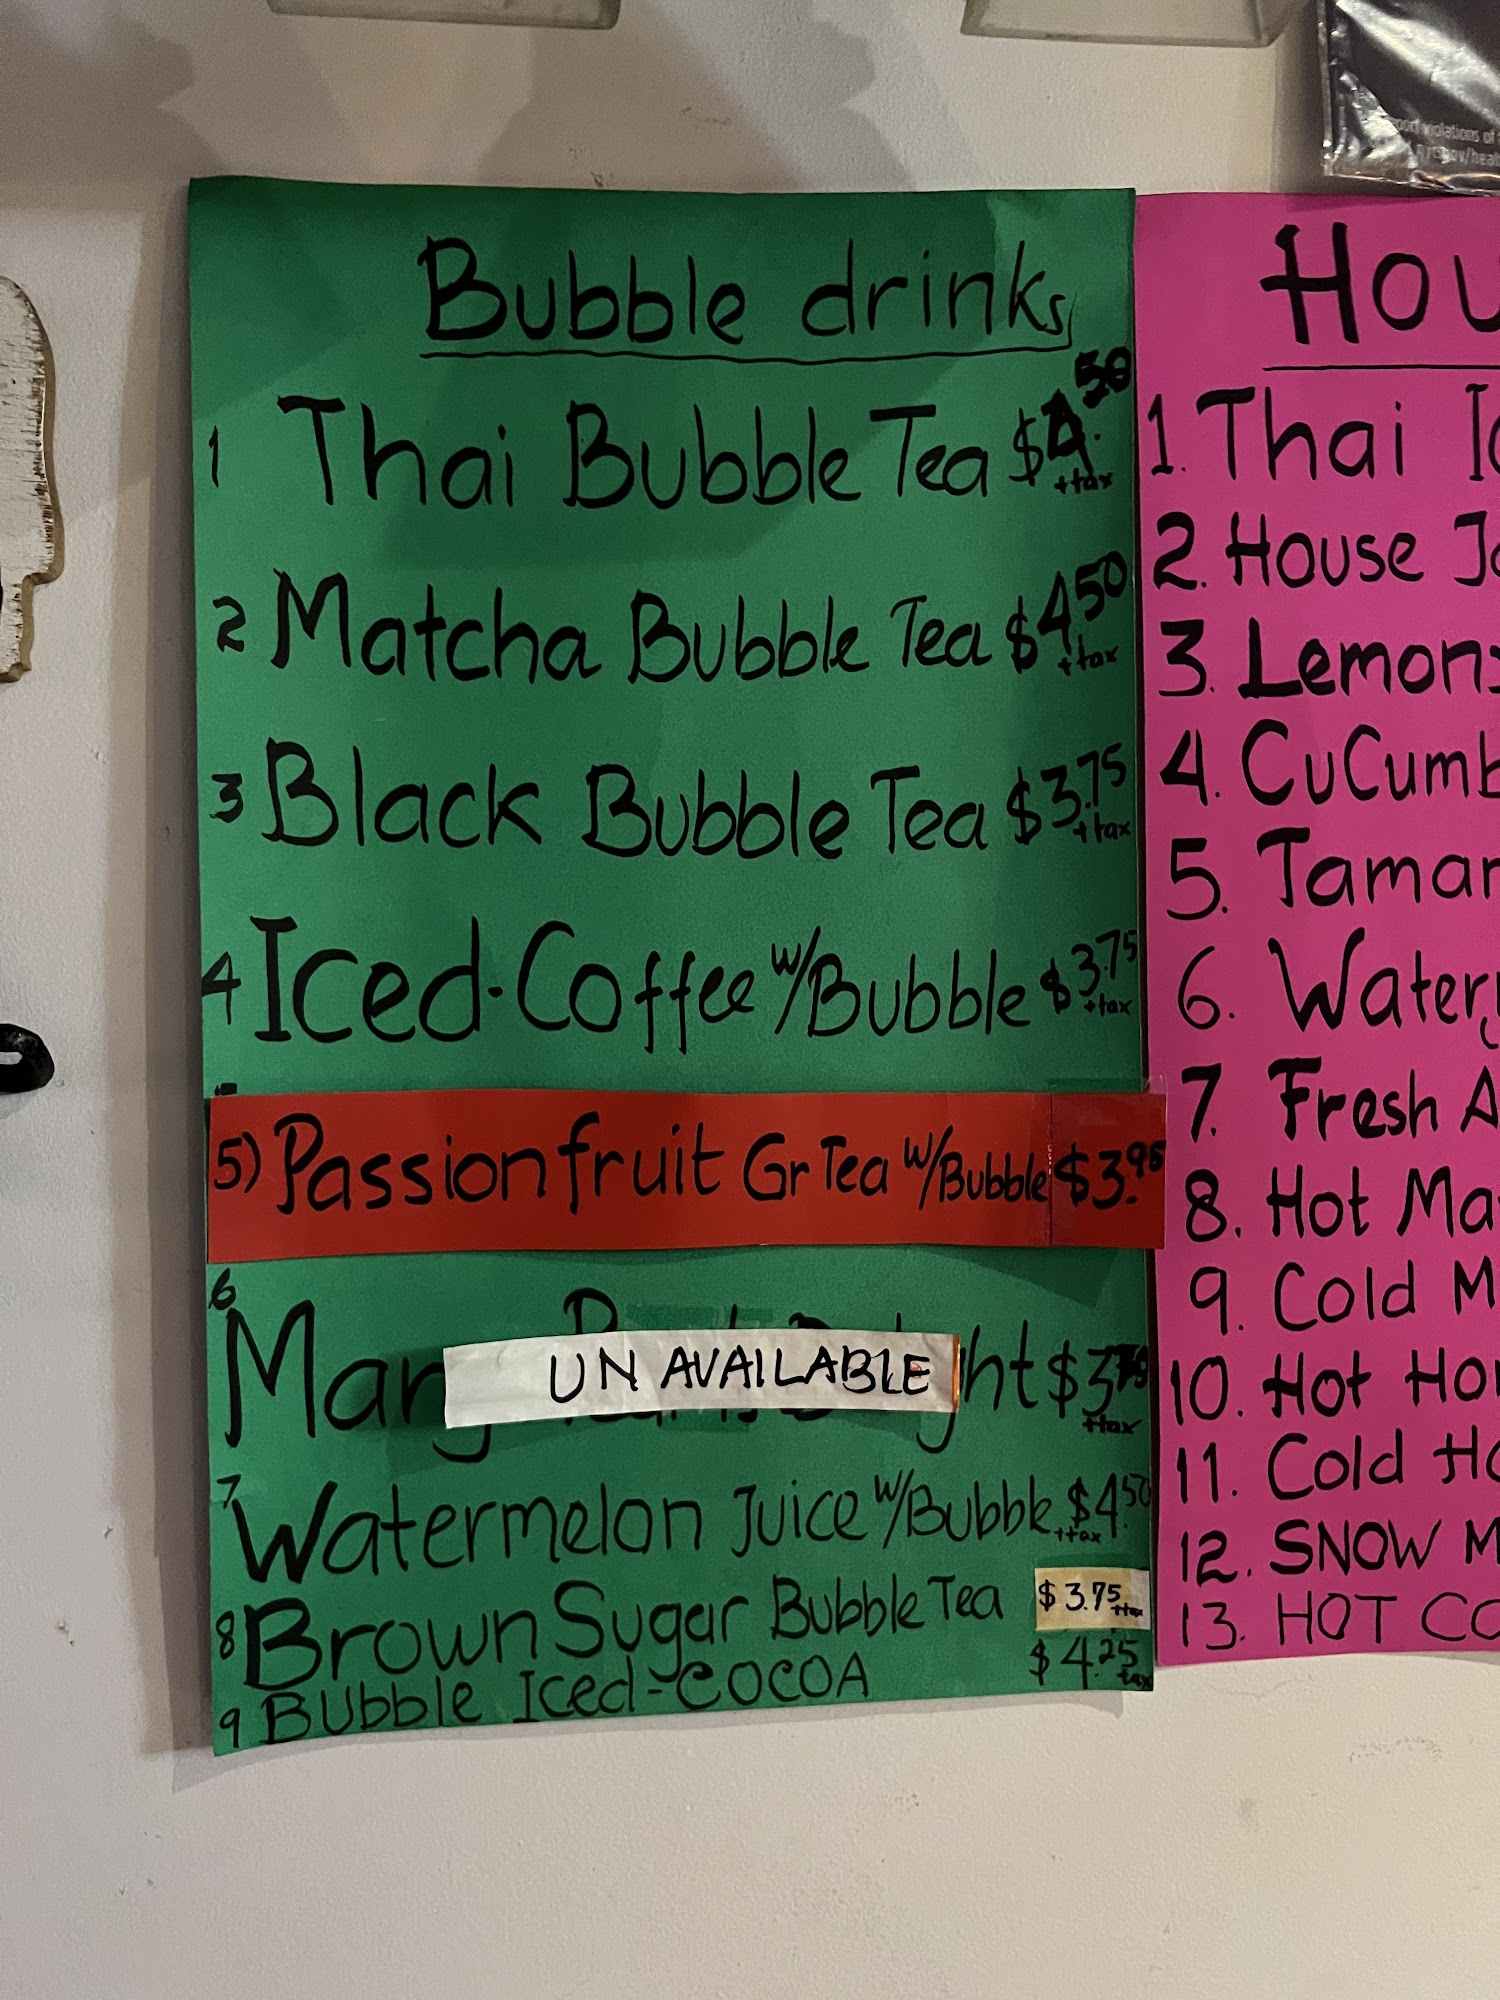 Bubble drinks
1 Thai Bubble Tea $4.50 +tax
2 Matcha Bubble Tea $4.50 +tax
3 Black Bubble Tea $3.75 +tax
4 Iced-Coffee w/Bubble $3.75 +tax
5) Passionfruit Gr Tea w/Bubble $3.95
6
UNAVAILABLE
+tax
7 Watermelon Juice w/Bubble $4.50 +tax
8 Brown Sugar Bubble Tea $3.75 +tax
9 BUBBLE Iced-COCOA $4.25 tax
1. Thai
2. House
3.
4.
5.
6.
7. Fresh
8. Hot
9. Cold
10. Hot
11. Cold
12. SNOW
13. HOT
violations of